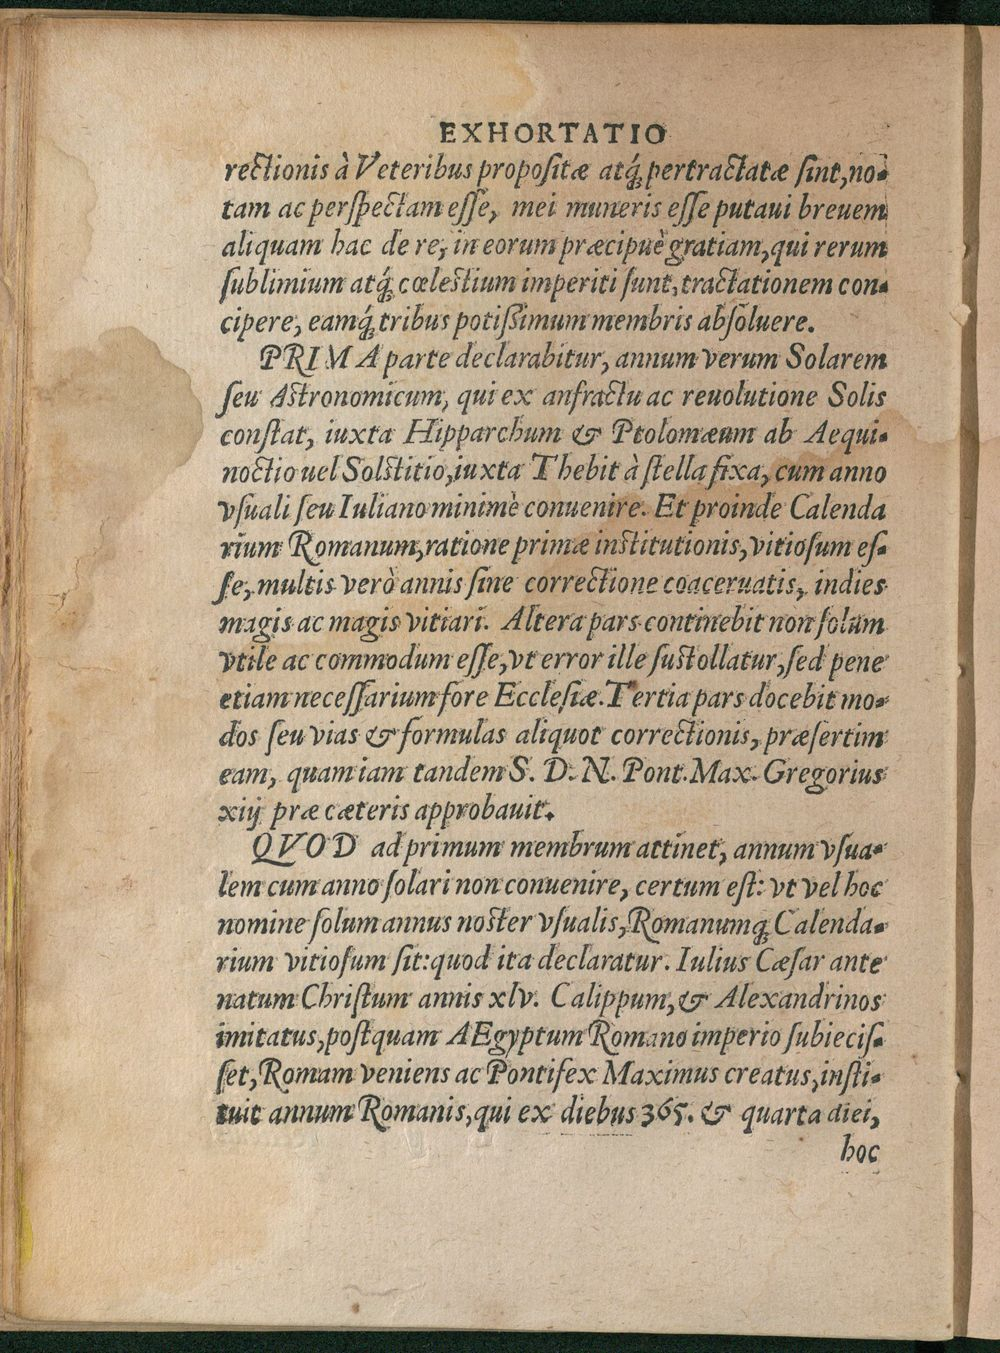 EXHORTATIO
rectionis à Veteribus propositæ atq́; pertractatæ sint, no-
tam ac perspectam esse, mei muneris esse putaui breuem
aliquam hac de re, in eorum præcipuè gratiam, qui rerum
sublimium atq́; cœlestium imperiti sunt, tractationem con-
cipere, eamq́; tribus potißimum membris absoluere.
PRIMA parte declarabitur, annum verum Solarem
seu Astronomicum, qui ex anfractu ac reuolutione Solis
constat, iuxta Hipparchum & Ptolomæum ab Aequi-
noctio uel Solstitio, iuxta Thebit à stella fixa, cum anno
vsuali seu Iuliano minimè conuenire. Et proinde Calenda
rium Romanum, ratione primæ institutionis, vitiosum es-
se, multis verò annis sine correctione coaceruatis, indies
magis ac magis vitiari. Altera pars continebit non solùm
vtile ac commodum esse, vt error ille sustollatur, sed pene
etiam necessarium fore Ecclesiæ. Tertia pars docebit mo-
dos seu vias & formulas aliquot correctionis, præsertim
eam, quam iam tandem S. D. N. Pont. Max. Gregorius
xiij præ cæteris approbauit.
QVOD ad primum membrum attinet, annum vsua-
lem cum anno solari non conuenire, certum est: vt vel hoc
nomine solum annus noster vsualis, Romanumq; Calenda-
rium vitiosum sit: quod ita declaratur. Iulius Cæsar ante
natum Christum annis xlv. Calippum, & Alexandrinos
imitatus, postquam AEgyptum Romano imperio subiecis-
set, Romam veniens ac Pontifex Maximus creatus, insti-
tuit annum Romanis, qui ex diebus 365. & quarta diei,
hoc